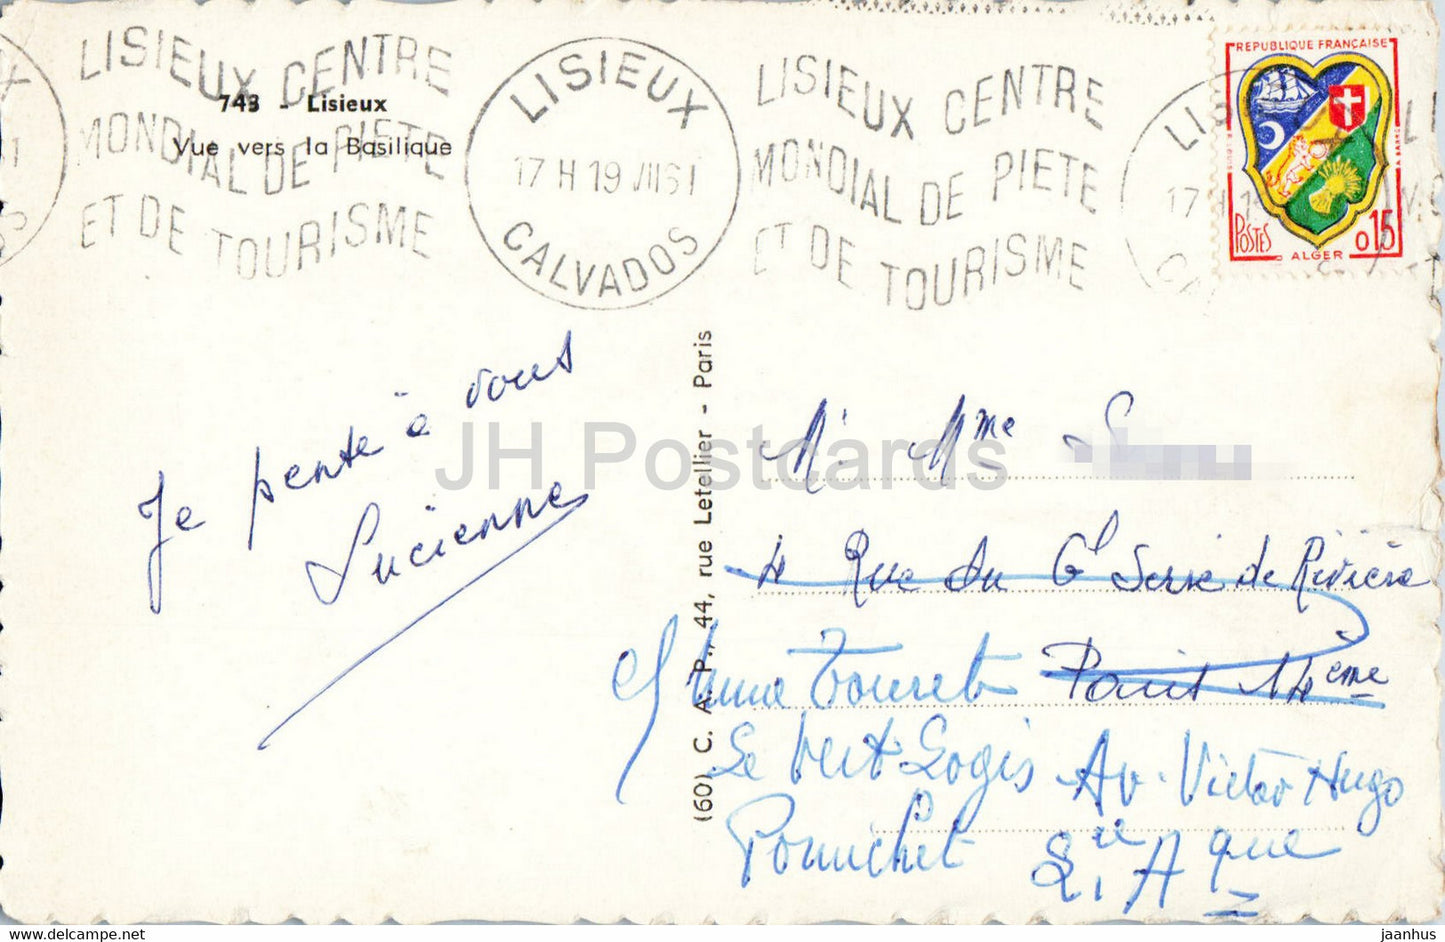 LISIEUX CENTRE
MONDIAL DE PIETE
ET DE TOURISME
743 - Lisieux
Vue vers la Basilique
LISIEUX
17 H 19 VII 61
CALVADOS
LISIEUX CENTRE
MONDIAL DE PIETE
ET DE TOURISME
REPUBLIQUE FRANÇAISE
POSTES
0,15
ALGER
Je pense à vous
Lucienne
(60) C. A. P., 44, rue Letellier - Paris
JH Postcards
M. Mme
4 Rue du Gl Serré de Rivière
Paris 14eme
Mme Touret
Le Vert Logis Av. Victor Hugo
Pornichet
Lre Aque
jaanhus - delcampe.net